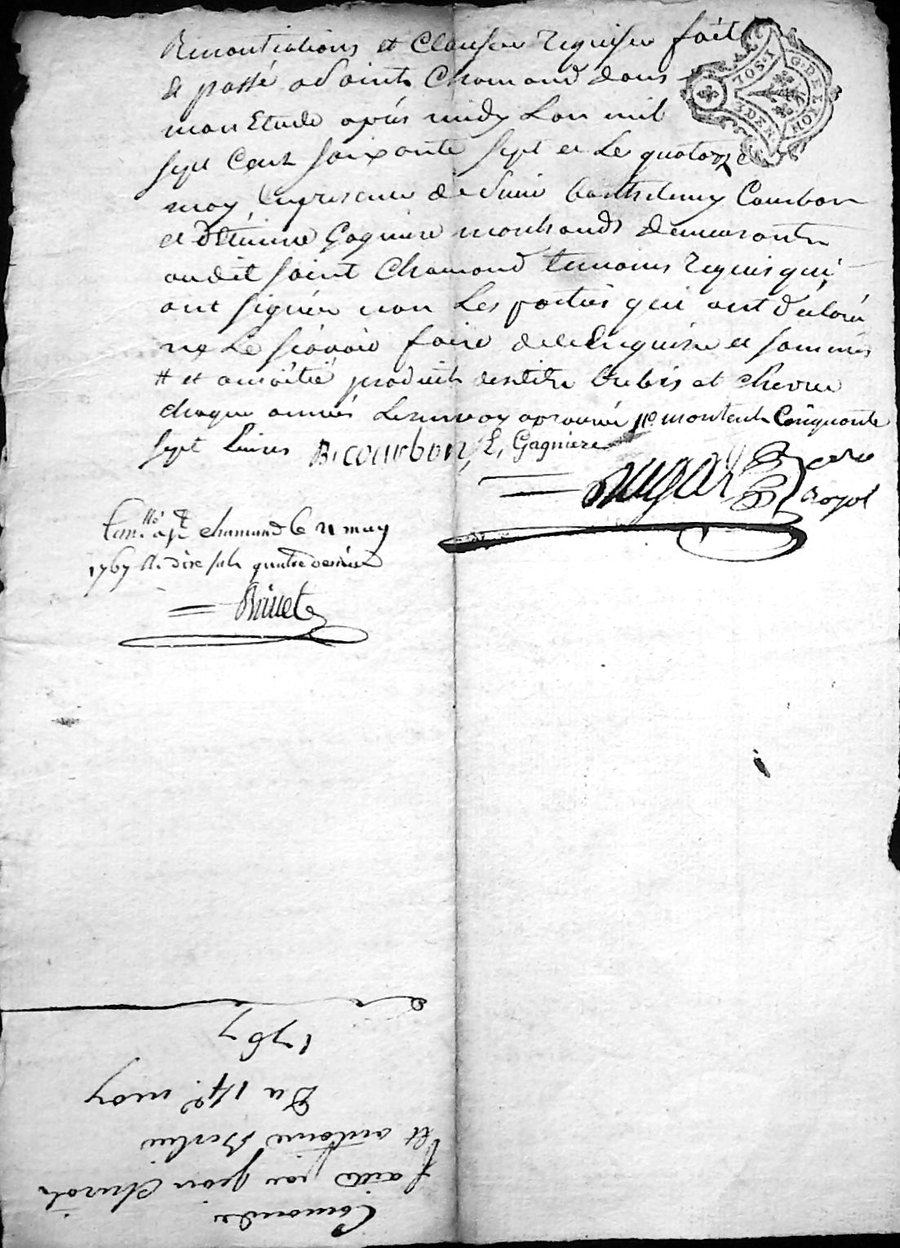 Renontiations et Clauses requises fait
& passé a Saint Chamond dans
mon Etude après midy Lan mil
sept Cent soixante sept et Le quatorze
may En presence de Barthelemy Courbon
et D'Etienne Gagniere marchands demeurants
audit Saint Chamond temoins requis qui
ont signés non Les parties qui ont declaré
ne Le sçavoir faire de ce Enquises et sommés
# et a moitié produit des dittes brebis et chevres
chaque année Le renvoy aprouvé montent Cinquante
sept Livres B. courbon E, Gagniere
G. DE LYON
1 SOL
DEN
royal
Con.llé a St chamond le 21 may
1767 R. dix sols quatre deniers
1767
Du 14e. may
et antoine
faite par jean
Comande